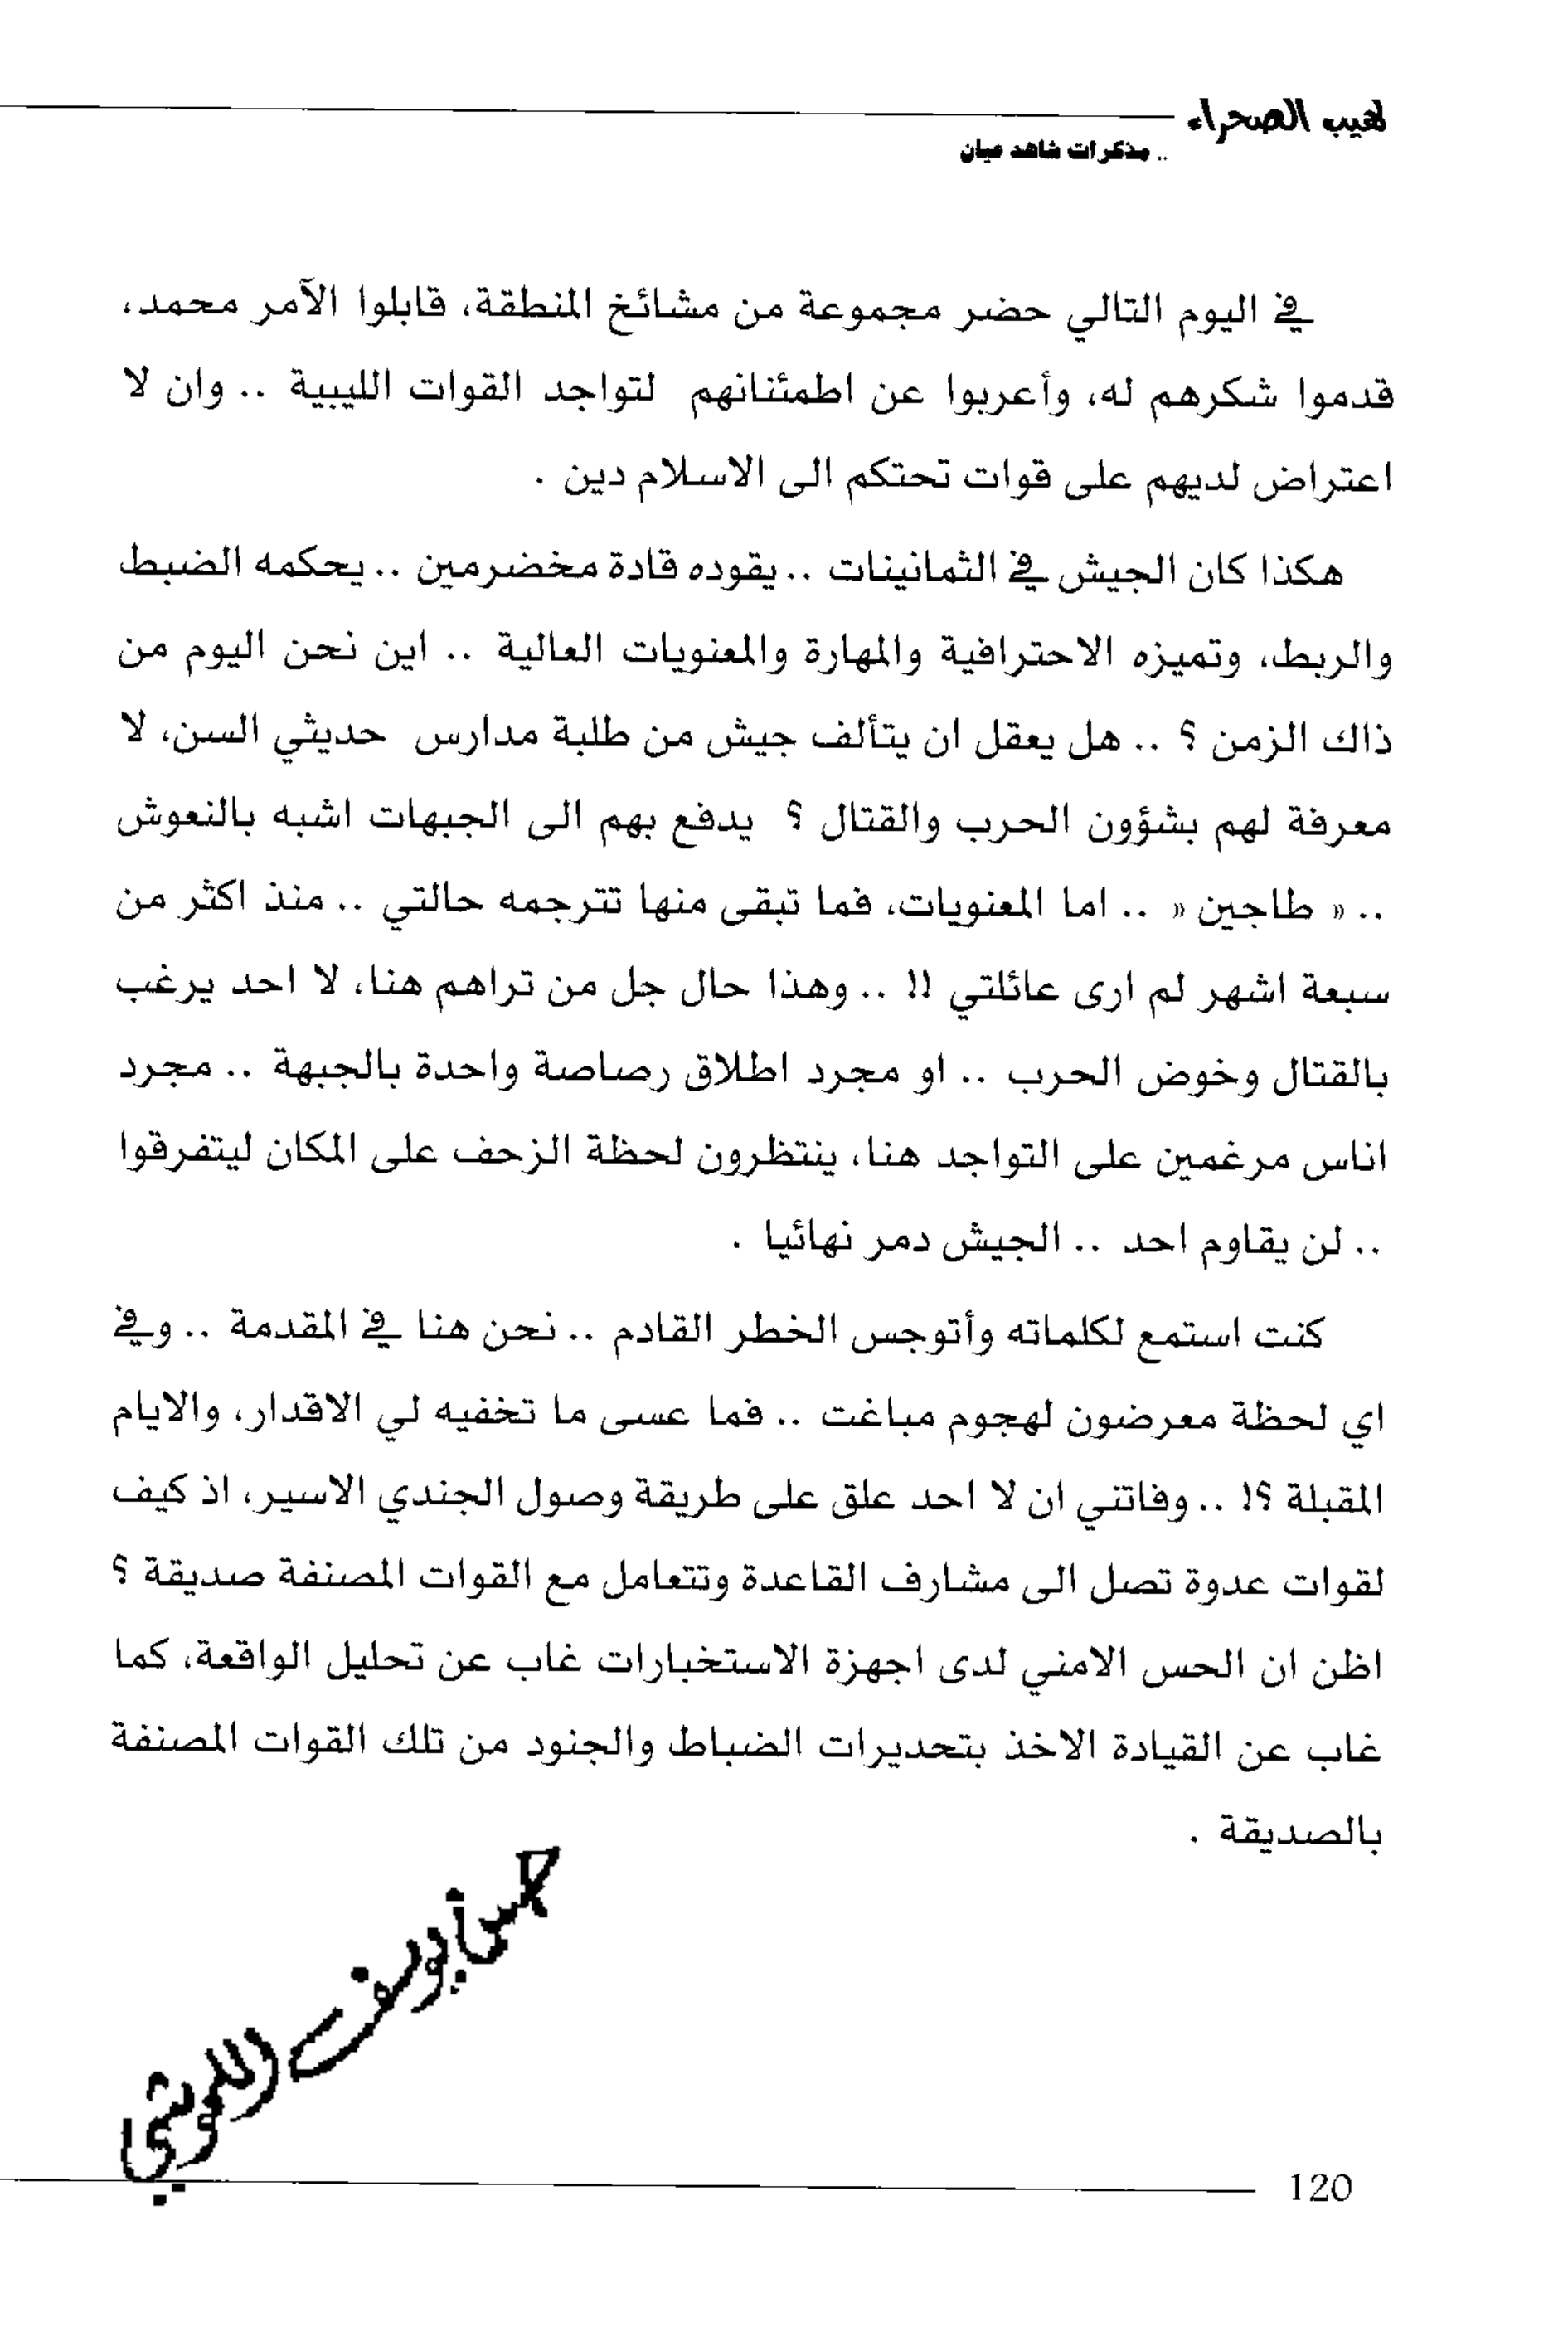 لهيب الصحراء
.. مذكرات شاهد عيان
في اليوم التالي حضر مجموعة من مشائخ المنطقة، قابلوا الآمر محمد،
قدموا شكرهم له، وأعربوا عن اطمئنانهم لتواجد القوات الليبية .. وان لا
اعتراض لديهم على قوات تحتكم الى الاسلام دين .
هكذا كان الجيش في الثمانينات .. يقوده قادة مخضرمين .. يحكمه الضبط
والربط، وتميزه الاحترافية والمهارة والمعنويات العالية .. اين نحن اليوم من
ذاك الزمن ؟ .. هل يعقل ان يتألف جيش من طلبة مدارس حديثي السن، لا
معرفة لهم بشؤون الحرب والقتال ؟ يدفع بهم الى الجبهات اشبه بالنعوش
.. « طاجين « .. اما المعنويات، فما تبقى منها تترجمه حالتي .. منذ اكثر من
سبعة اشهر لم ارى عائلتي !! .. وهذا حال جل من تراهم هنا، لا احد يرغب
بالقتال وخوض الحرب .. او مجرد اطلاق رصاصة واحدة بالجبهة .. مجرد
اناس مرغمين على التواجد هنا، ينتظرون لحظة الزحف على المكان ليتفرقوا
.. لن يقاوم احد .. الجيش دمر نهائيا .
كنت استمع لكلماته وأتوجس الخطر القادم .. نحن هنا في المقدمة .. وفي
اي لحظة معرضون لهجوم مباغت .. فما عسى ما تخفيه لي الاقدار، والايام
المقبلة ؟! .. وفاتني ان لا احد علق على طريقة وصول الجندي الاسير، اذ كيف
لقوات عدوة تصل الى مشارف القاعدة وتتعامل مع القوات المصنفة صديقة ؟
اظن ان الحس الامني لدى اجهزة الاستخبارات غاب عن تحليل الواقعة، كما
غاب عن القيادة الاخذ بتحديرات الضباط والجنود من تلك القوات المصنفة
بالصديقة .
120